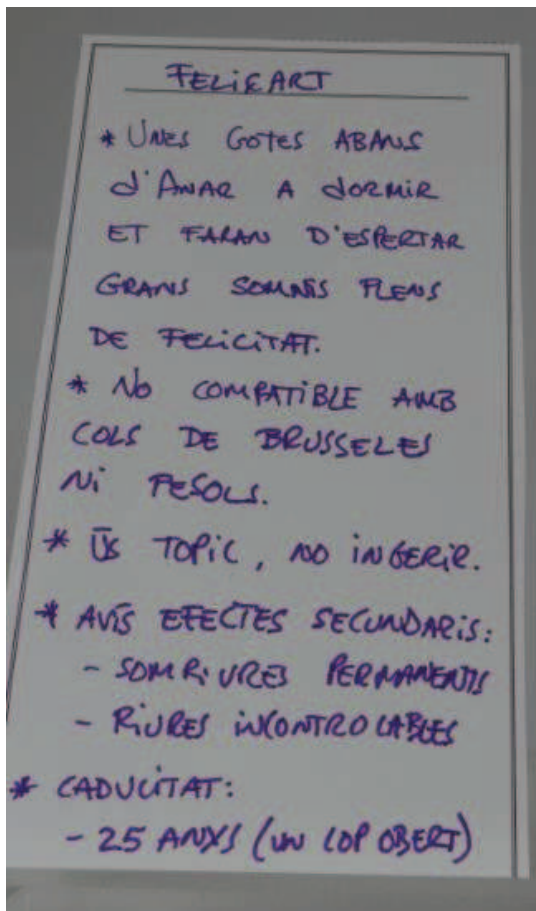 FELICART
* UNES GOTES ABANS
d'ANAR A dORMIR
ET FARAN D'ESPERTAR
GRANS SOMNIS PLENS
DE FELICITAT.
* NO COMPATIBLE AMB
COLS DE BRUSSELES
Ni PESOLS.
* ÚS TOPiC, NO iNGERiR.
* AVÍS EFECTES SECUNDARiS:
- SOMRiURES PERMANENTS
- RiURES iNCONTROLABLES
* CADUCiTAT:
- 25 ANYS (UN COP OBERT)